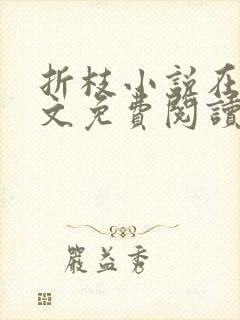 折枝小说在
文免費閱讀
嚴益秀